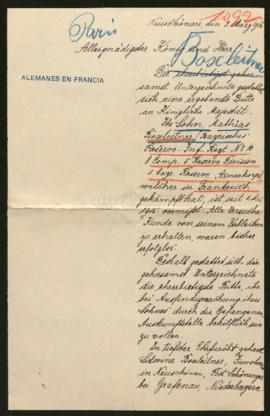 1092
Paris
Neuschönau, den 3. März 1916
Allergnädigster König und Herr!
Boxleitner
Die ehrerbietigst gehor-
samst Unterzeichnete gestattet
sich eine ergebene Bitte
an Königliche Majestät.
ALEMANES EN FRANCIA
Ihr Sohn Mathias
Boxleitner, Bayerisches
Reserve-Inf. Regt No 11
8 Comp. 5 Reserve Division
1 bay. Reserve Armeekorps
welcher in Frankreich
gekämpft hat, ist seit
vermißt. Alle Versuche
Kunde von seinem
zu erhalten, waren bisher
erfolglos.
Deshalb gestattet sich die
gehorsamst Unterzeichnete
die ehrerbietigste Bitte, ihr
bei Ausfindigmachung ihres
Sohnes durch die Gefangenen
Auskunftstelle behilflich sein
zu wollen.
In tiefster Ehrfurcht gehorsamst
Boxleitner,
in Neuschönau, Post Schönanger
bei Grafenau, Niederbayern